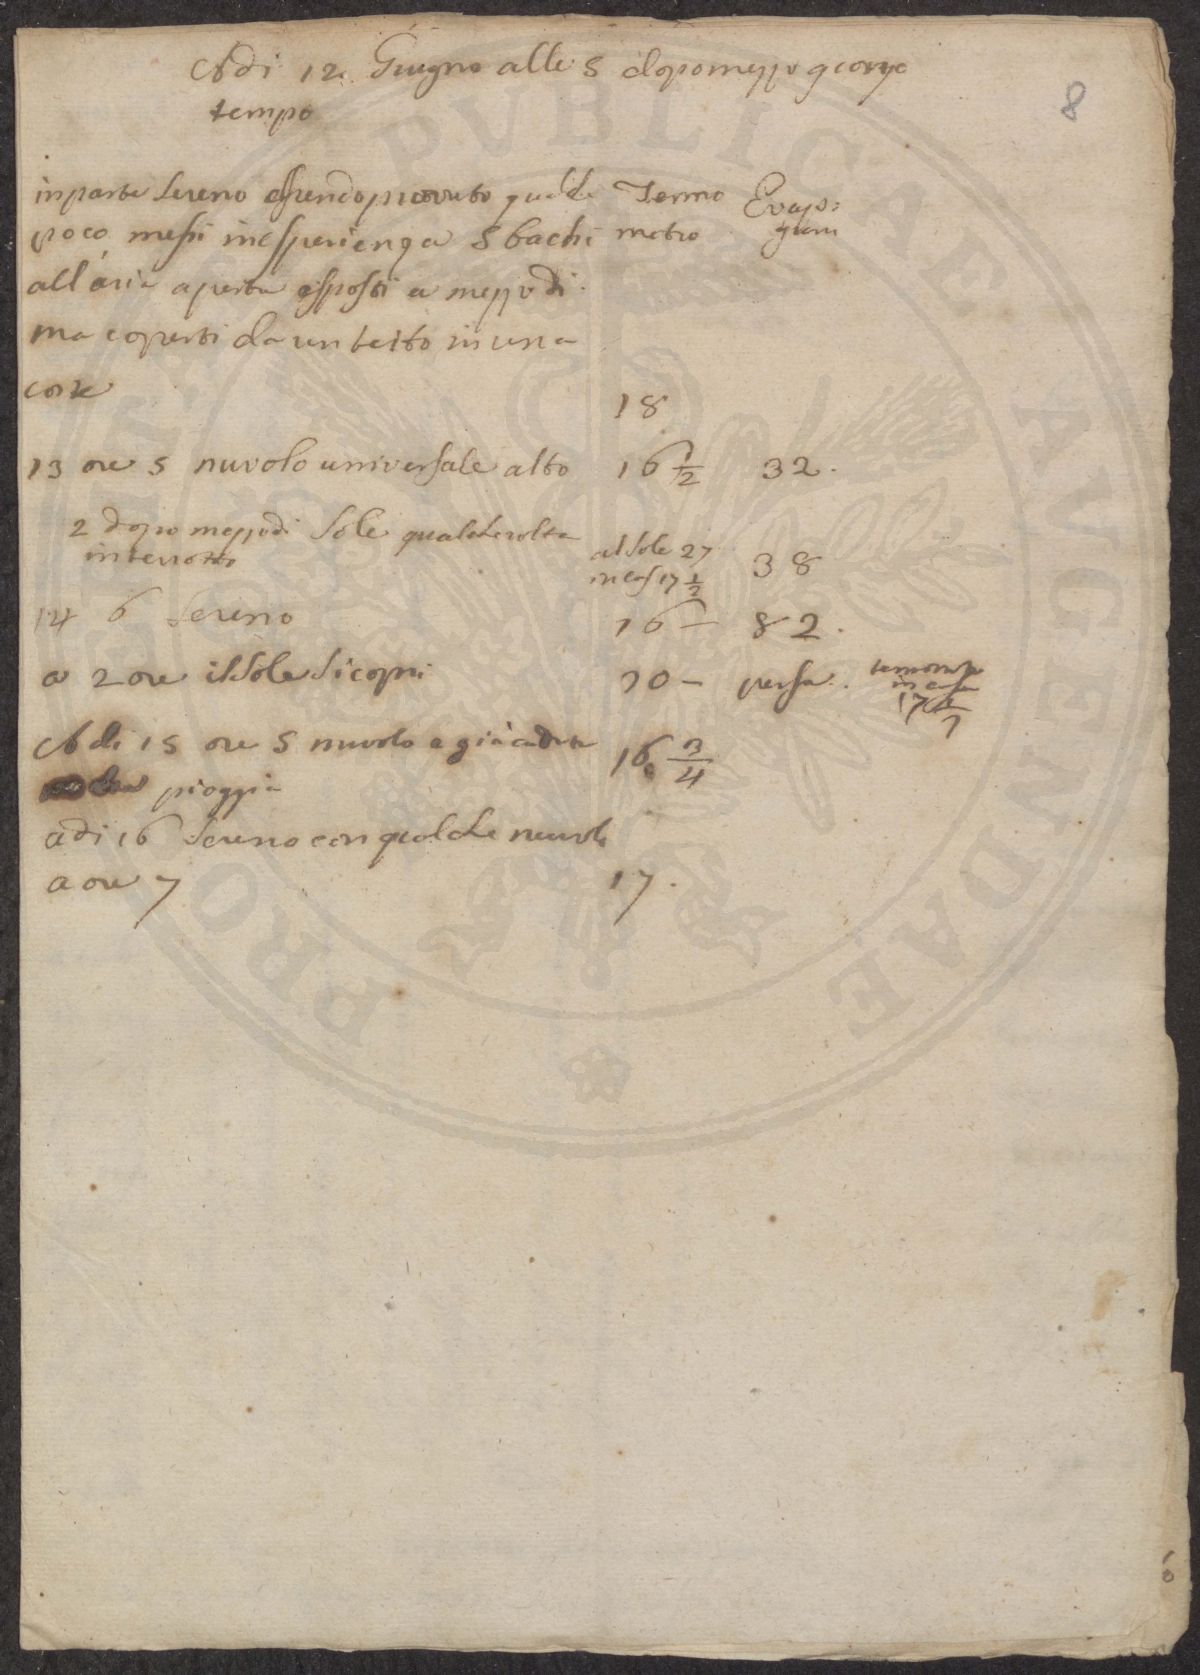 Adi 12 Giugno alle 5 dopo mezzo giorno
8
tempo
in parte sereno essendo piovuto qualche Termo Evap:
poco messi in esperienza 5 bachi metro grani
all'aria aperta esposti a mezzo dì
ma coperti da un tetto in una
corte 18
13 ore 5 nuvolo universale alto 16 1/2 32.
2 dopo mezzodi sole qualche volta
interrotto al sole 27 38
in cas 17 1/2
14 6 Sereno 16 – 82.
a 2 ore il sole si coprì 20 – persa. termometro
in casa
17
Adi 15 ore 5 nuvolo e già caduta 16 3/4
pioggia
adi 16 Sereno con qualche nuvolo
a ore 7 17.
PRO PVBLICAE AVGENDAE
6